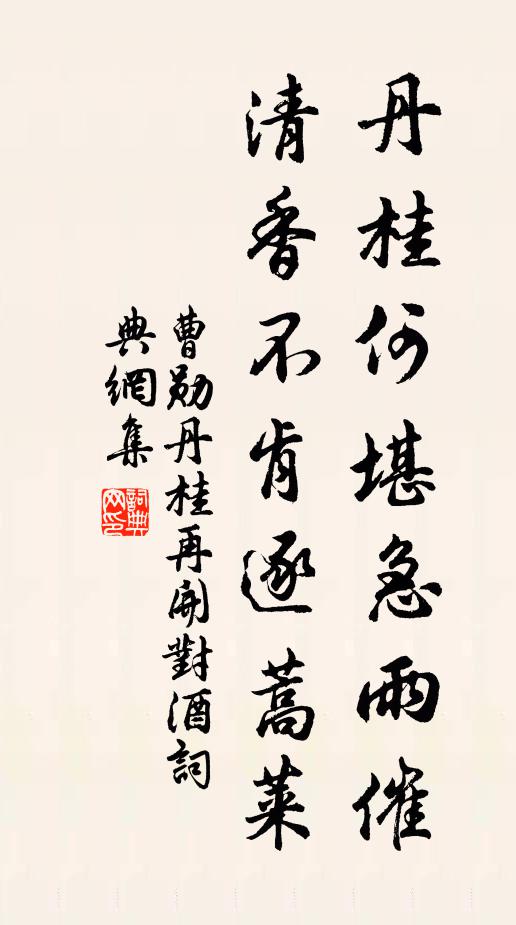 丹桂何堪急雨催
清香不肯逐蒿萊
曹勛丹桂再開對酒詞
典網集
詞典網印